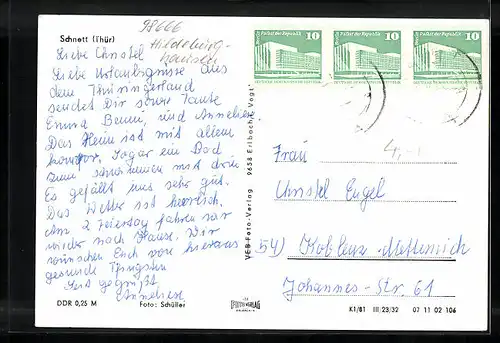 Schnett (Thür)
98666
Hildburg-
hausen
Liebe Christel
Liebe Urlaubsgrüsse aus
dem Thüringerland
sendet Dir Tante
Emma Benni, und Anneliese.
Das Heim ist mit allem
komfor. Sogar ein Bad
zum schwimmen mit drin
Es gefällt uns sehr gut.
Das Wetter ist herrlich.
Am 2 Feiertag fahren wir
wieder nach Hause. Wir
wünschen Euch von hieraus
gesunde Pfingsten
Seid gegrüßt
Anneliese
DDR 0,25 M
Foto: Schüller
VEB Foto-Verlag 9658 Erlbach
Palast der Republik 10
Palast der Republik 10
Palast der Republik 10
4,-
Frau
Christel Engel
54) Koblenz-Metternich
Johannes-Str. 61
K1/81 III/23/32 07 11 02 106